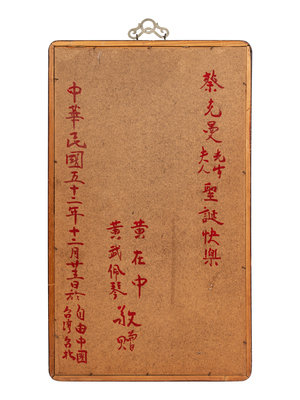 蔡克曼先生夫人聖誕快樂
黄在中
黄武佩琴
敬贈
中華民國五十二年十二月廿五日於自由中國台灣台北